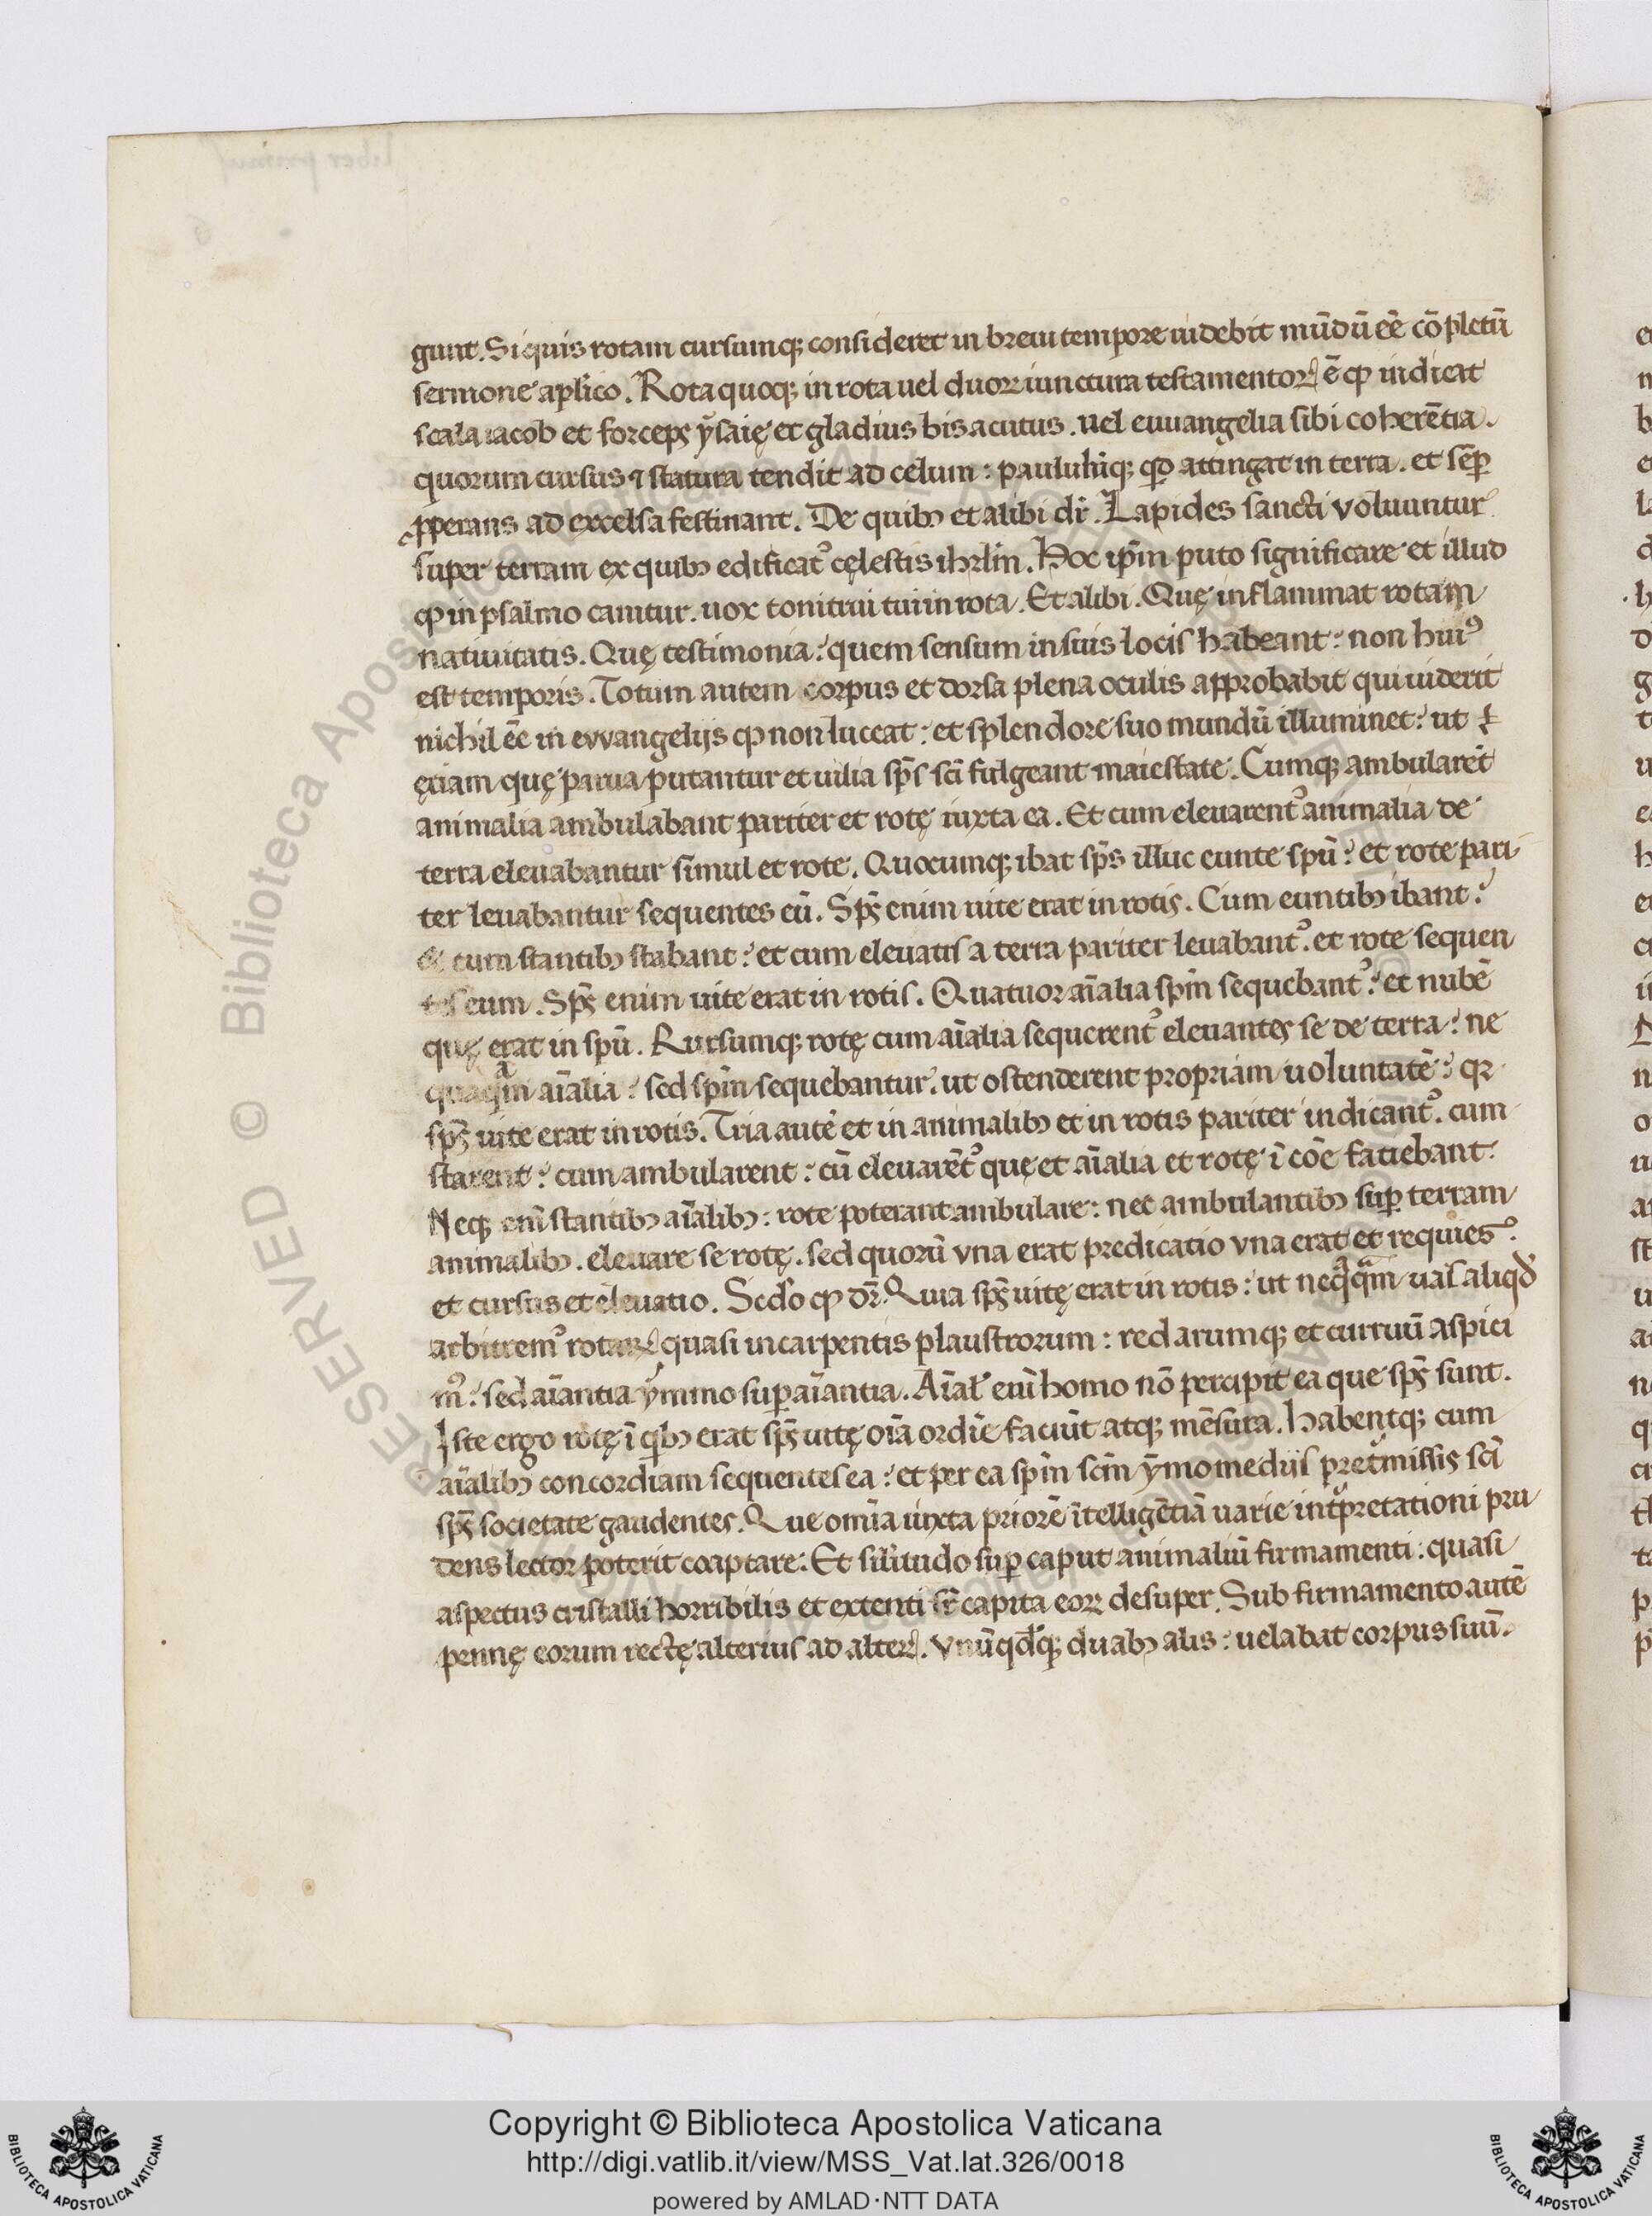 gunt. Si quis rotam cursumq; consideret in breui tempore uidebit mūdū eē cōpletū
sermone aplico. Rota quoq; in rota uel duoꝝ iunctura testamentoꝝ ē ꝙ indicat
scala iacob et forceps ysaię et gladius bis acutus. uel euuangelia sibi coherētia.
quorum cursus ⁊ statura tendit ad celum: paululūq; qđ attingat in terra. et semꝑ
ꝓperans ad excelsa festinant. De quibꝫ et alibi dr̄. Lapides sancti voluuntur
super terram ex quibꝫ edificatꝰ cęlestis ihrlm̄. Hoc ip̄m puto significare et illud
ꝙ in psalmo canitur. uox tonitrui tui in rota. Et alibi. Quę inflammat rotam
natiuitatis. Quę testimonia: quem sensum in suis locis habeant: non huiꝰ
est temporis. Totum autem corpus et dorsa plena oculis approbabit qui uiderit
nichil eē in evvangelijs ꝙ non luceat: et splendore suo mundū illuminet: ut
ętiam quę parua putantur et uilia sp̄s sc̄i fulgeant maiestate. Cumq; ambularēt
animalia ambulabant pariter et rotę iuxta ea. Et cum eleuarentꝰ animalia de
terra eleuabantur simul et rote. Quocumq; ibat sp̄s illuc eunte spū: et rote pari
ter leuabantur sequentes eū. Sp̄s enim uite erat in rotis. Cum euntibꝫ ibant:
& cum stantibꝫ stabant: et cum eleuatis a terra pariter leuabantꝰ. et rote sequen
tes eum. Sp̄s enim uite erat in rotis. Quatuor aīalia sp̄m sequebantꝰ: et nubē
quę erat in spū. Rursumq; rotę cum aīalia sequerentꝰ eleuantes se de terra: ne
quaq̄m aīalia: sed sp̄m sequebantur. ut ostenderent propriam uoluntatē: qꝛ
sp̄s uite erat in rotis. Tria autē et in animalibꝫ et in rotis pariter indicantꝰ. cum
starent: cum ambularent: cū eleuarētꝰ quę et aīalia et rotę ī cōe faciebant.
Neq; enī stantibꝫ aīalibꝫ: rote poterant ambulare: nec ambulantibꝫ suꝑ terram
animalibꝫ. eleuare se rotę. sed quorū vna erat predicatio vna erat et requies.
et cursus et eleuatio. Sedo ꝙ dr̄. Quia sp̄s uitę erat in rotis: ut neq̄q̄m uas aliqđ
arbitremꝰ rotaꝝ quasi in carpentis plaustrorum: redarumq; et curruū aspici
mꝰ: sed aīantia ymmo suꝑaīantia. Aīal enī homo nō percipit ea que sp̄s sunt.
Iste ergo rotę ī qͥbꝫ erat sp̄s uitę oīa ordīe faciūt atq; mēsura. Habentq; cum
aīalibꝫ concordiam sequentes ea: et per ea sp̄m sc̄m ymo medijs pret̄missis sc̄i
sp̄s societate gaudentes. Que omīa iuxta priorē ītelligētiā uarie int̄pretationi pru
dens lector poterit coaptare. Et sīlitudo suꝑ caput animaliū firmamenti: quasi
aspectus cristalli horribilis et extenti sr̄ capita eoꝝ desuper. Sub firmamento autē
pennę eorum rectę alterius ad alteꝝ. Vnūqđq; duabꝫ alis: uelabat corpus suū.
Copyright © Biblioteca Apostolica Vaticana
http://digi.vatlib.it/view/MSS_Vat.lat.326/0018
powered by AMLAD·NTT DATA